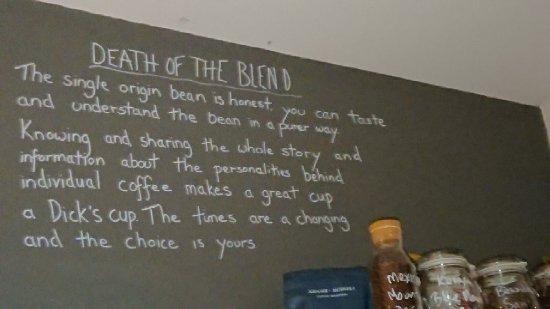 DEATH OF THE BLEND
The single origin bean is honest. you can taste
and understand the bean in a purer way
Knowing and sharing the whole story and
information about the personalities behind
individual coffee makes a great cup
a Dick's cup. The times are a changing
and the choice is yours